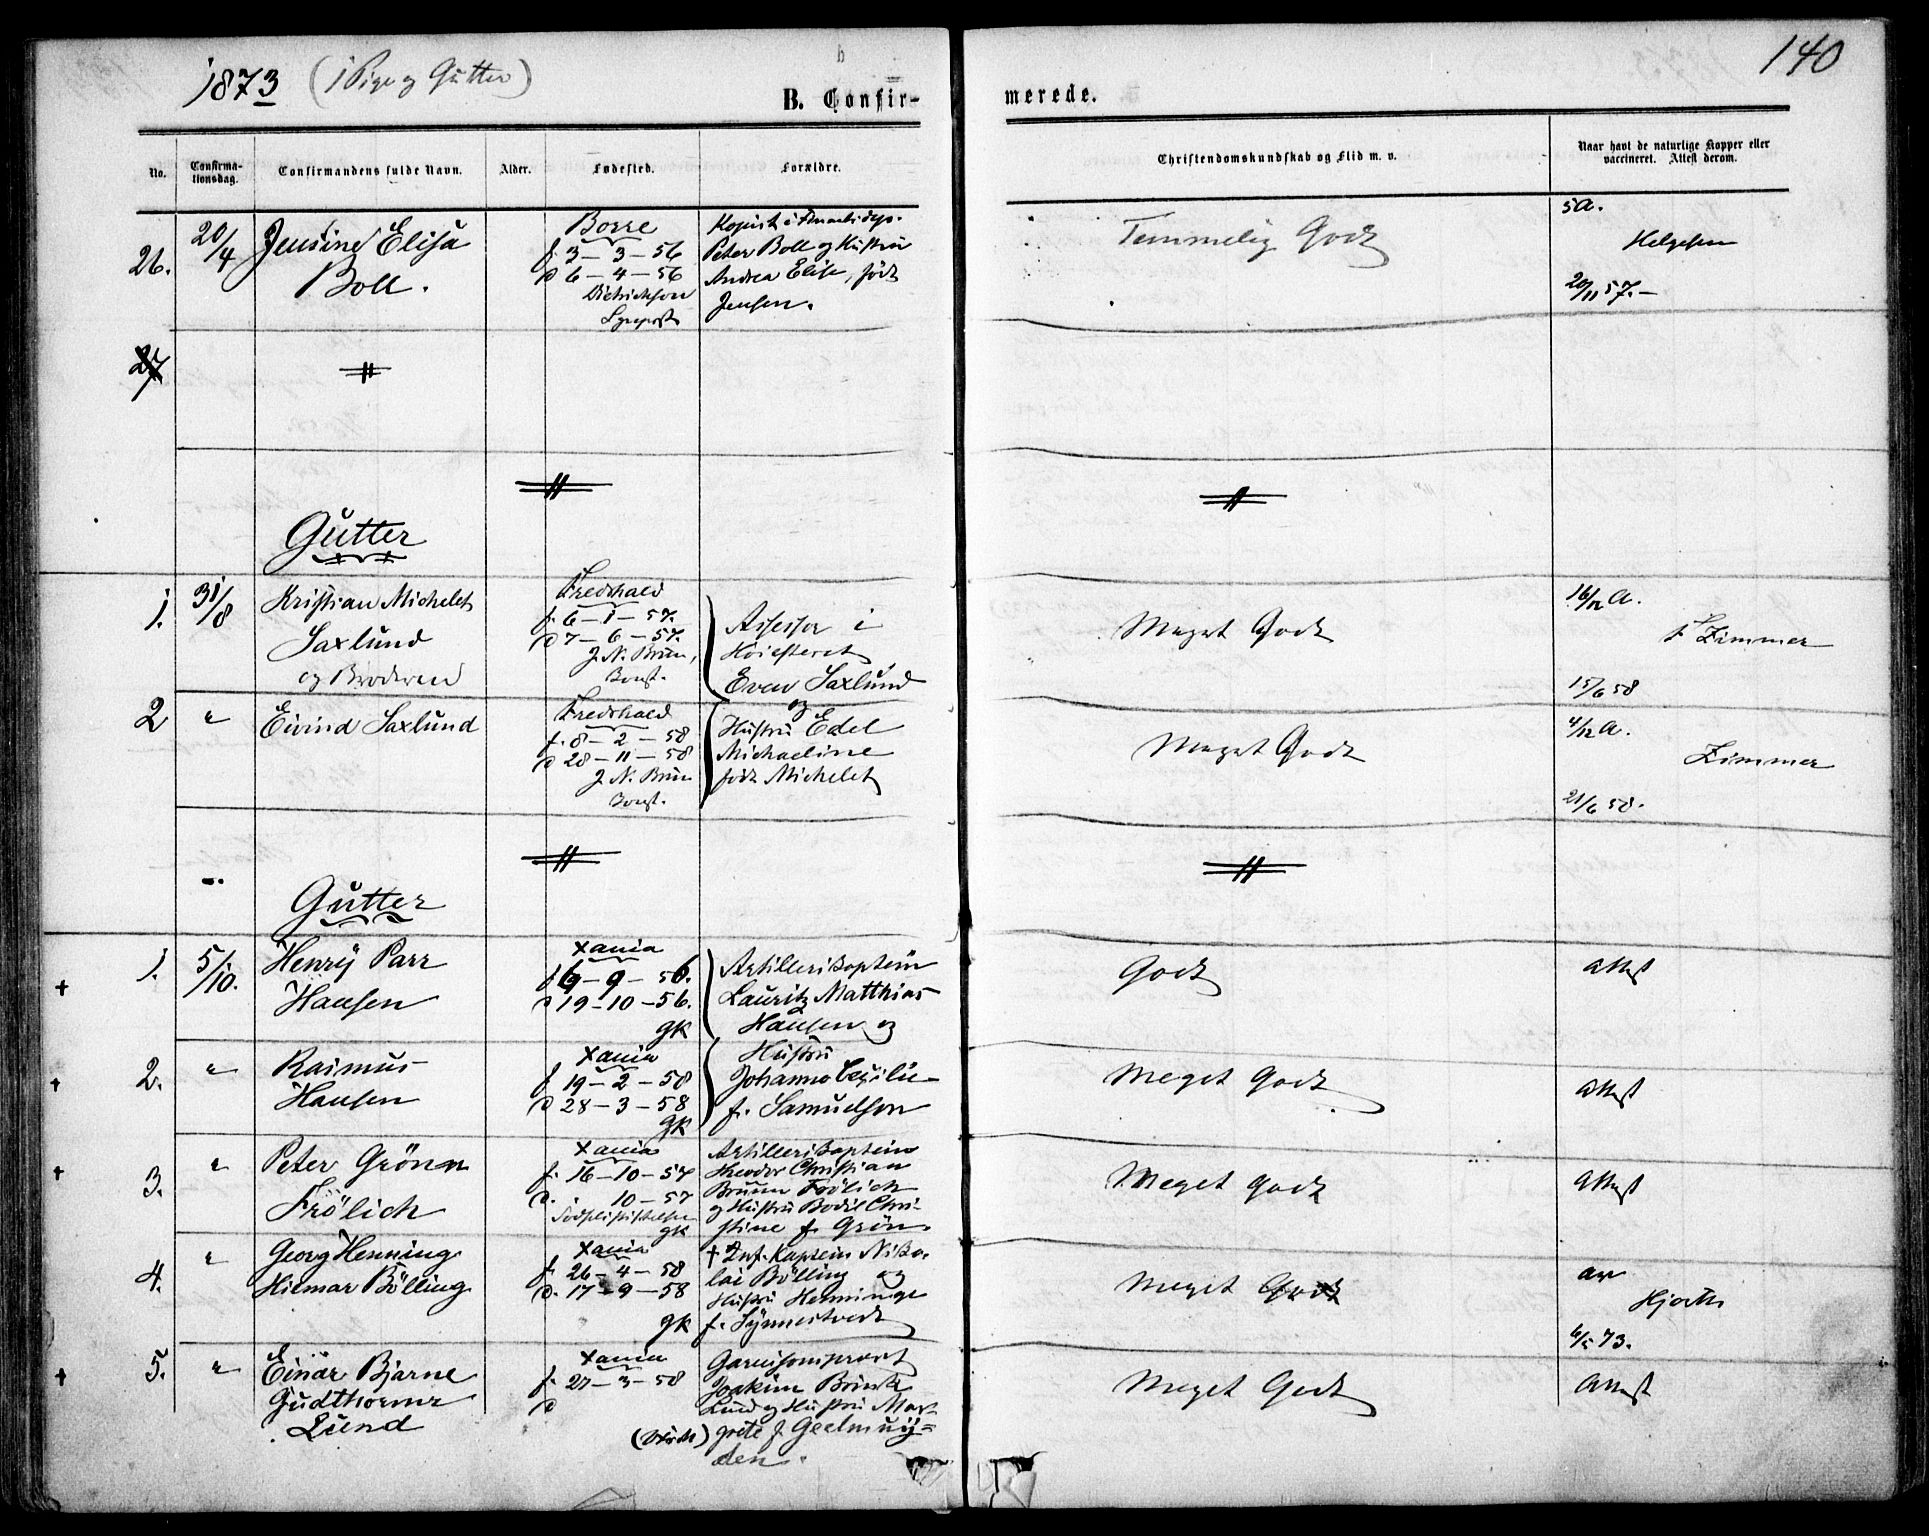 1873 (1 Pige og Gutter)
140
B. Confir-
merede.
No.
Confirma-
tionsdag.
Confirmandens fulde Navn.
Alder.
Fødested.
Forældre.
Christendomskundskab og Flid m. v.
Naar havt de naturlige Kopper eller
vaccineret. Attest derom.
26.
20/4
Jensine Elisa
Boll.
Borre
f. 3 - 3 - 56
d 6 - 4 - 56
Didrichson
Sgnprst
Kopist i
Peter Boll og Hustru
Andrea Elise, født
Jensen.
Temmelig Godt
5a.
Helgesen
20/11 57. -
27
Gutter
1.
31/8
Kristian Michelet
Saxlund
og Broderen
Fredshald
f. 6 - 1 - 57.
d 7 - 6 - 57.
J. N. Brun,
Const.
Assessor i
Høiesteret
Even Saxlund
Meget Godt
16/12 A.
F Zimmer
15/6 58
2
"
Eivind Saxlund
Fredshald
f. 8 - 2 - 58
d 28 - 11 - 58
J. N. Brun
Const.
og
Hustru Edel
Michaeline
født Michelet
Meget Godt
4/12 A.
Zimmer
21/6 58.
Gutter
1.
5/10.
Henrÿ Parr
Hansen
Xania
f 6 - 9 - 56.
d 19 - 10 - 56.
GK
Artillerikaptein
Lauritz Matthias
Hansen og
Godt
Attest
2.
"
Rasmus
Hansen
Xania
f 19 - 2 - 58
d 28 - 3 - 58
GK
Hustru
Johanne Cecilie
f. Samuelson
Meget Godt
Attest
3.
"
Peter Grönn
Frölich
Xania
f. 16 - 10 - 57
d. 10 - 57
GK
Artillerikaptein
Theodor Christian
Bruun Frölich
og Hustru Bodil Chri-
stine f. Grön.
Meget godt
Attest
4.
"
Georg Henning
Hilmar Bölling
Xania
f. 26 - 4 - 58
d. 17 - 9 - 58
GK
† Inf. Kaptein Niko-
lai Bölling og
Hustru Henninge
f. Synnestvedt
Meget Godt
av
Hjorth
6/5 73.
5.
"
Einar Bjarne
Gudthormr
Lund
Xania
f. 27 - 3 - 58
d
Garnisonsprest
Joakim Brinch
Lund og Hustru Mar-
grete f. Geelmuÿ=
den.
Meget Godt
Attest